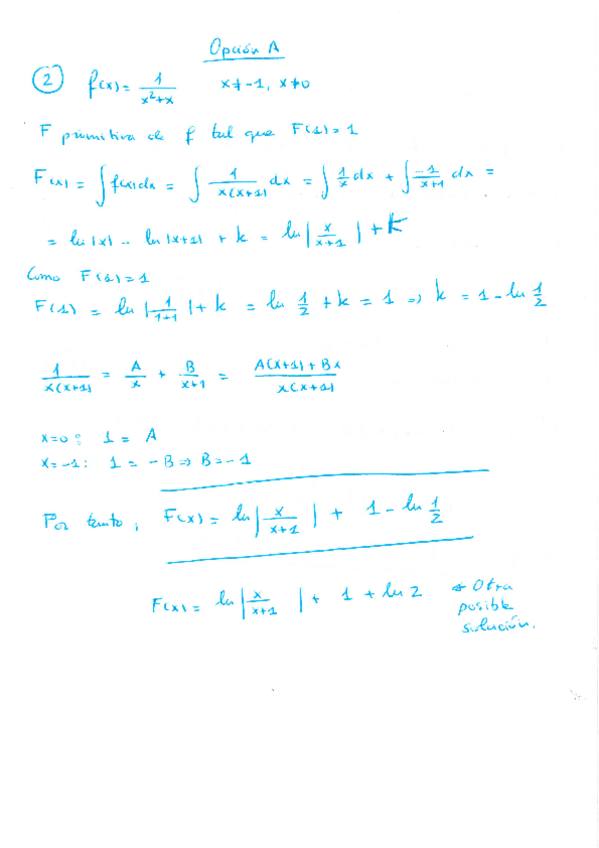 Opción A
② f(x) = 1/(x²+x)   x ≠ -1, x ≠ 0
F primitiva de f tal que F(1) = 1
F(x) = ∫ f(x) dx = ∫ 1/(x(x+1)) dx = ∫ 1/x dx + ∫ -1/(x+1) dx =
= ln|x| - ln|x+1| + k = ln|x/(x+1)| + K
Como F(1) = 1
F(1) = ln|1/(1+1)| + k = ln 1/2 + k = 1 ⇒ k = 1 - ln 1/2
1/(x(x+1)) = A/x + B/(x+1) = (A(x+1) + Bx)/(x(x+1))
x=0: 1 = A
x=-1: 1 = -B ⇒ B = -1
Por tanto, F(x) = ln|x/(x+1)| + 1 - ln 1/2
F(x) = ln|x/(x+1)| + 1 + ln 2   ← Otra
posible
solución.